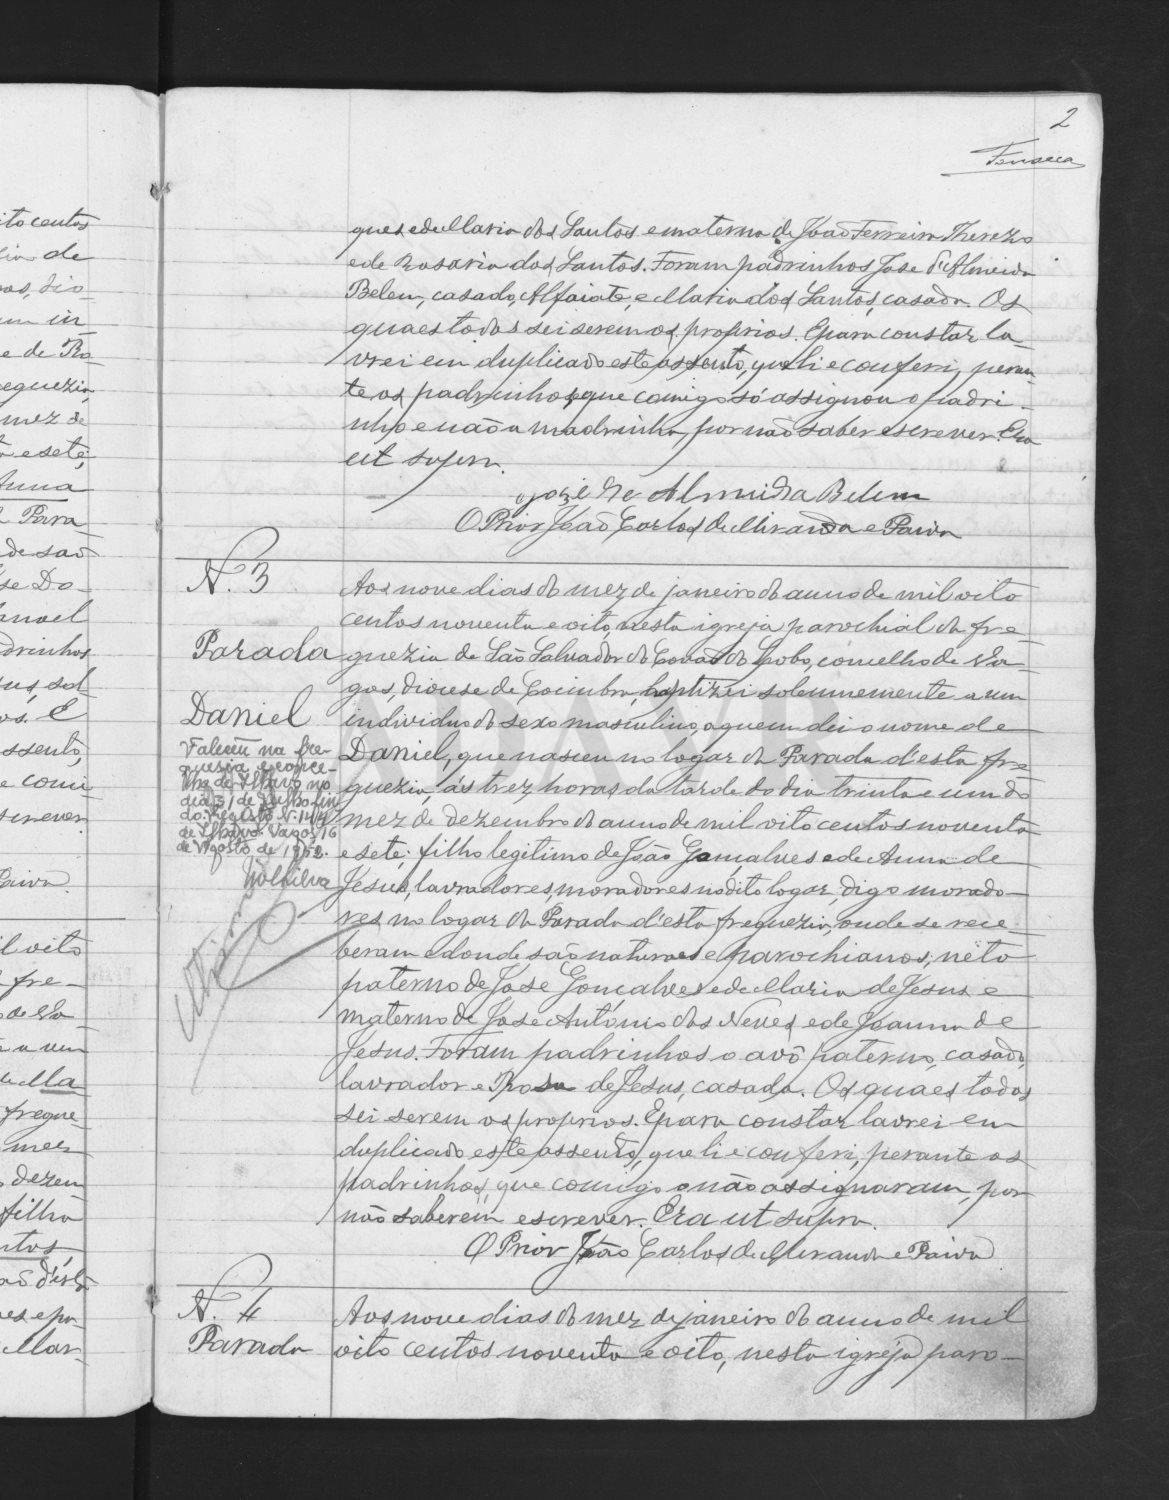 2
Fonseca
ques e de Maria dos Santos e materna de João Ferreira Therezo
e de Rosaria dos Santos. Foram padrinhos Jose d'Almeida
Belem, casado, Alfaiate, e Maria dos Santos, casada. Os
quaes todos sei serem os proprios. E para constar la-
vrei em duplicado este assento, que li e conferi, peran-
te os padrinhos, que comigo só assignou o padri-
nho e não a madrinha, por não saber escrever. Era
ut supra.
José de Almeida Belem
O Prior João Carlos de Miranda e Paiva
N. 3
Parada
Daniel
Faleceu na fre-
guesia e conce-
lho de Ilhavo no
dia 31 de Julho fin
do. Registo N.
de Ilhavo. Vagos, 16
de Agosto de 1952.
Silva
Aos nove dias do mez de janeiro do anno de mil oito
centos noventa e oito, nesta igreja parochial da fre-
guezia de São Salvador de Covão do Lobo, concelho de Va-
gos, diocese de Coimbra, baptizei solemnemente a um
individuo do sexo masculino, a quem dei o nome de
Daniel, que nasceu no logar da Parada d'esta fre-
guezia, ás trez horas da tarde do dia trinta e um do
mez de dezembro do anno de mil oito centos noventa
e sete; filho legitimo de João Gonçalves e de Anna de
Jesus, lavradores, moradores no dito logar, digo morado-
res no logar da Parada d'esta freguezia, onde se rece-
beram e donde são naturaes e parochianos; neto
paterno de Jose Gonçalves e de Maria de Jesus e
materno de Jose Antonio das Neves e de Joanna de
Jesus. Foram padrinhos o avô paterno, casado,
lavrador e Rosa de Jesus, casada. Os quaes todos
sei serem os proprios. E para constar lavrei em
duplicado este assento, que li e conferi, perante os
padrinhos, que comigo não assignaram, por
não saberem escrever. Era ut supra.
O Prior João Carlos de Miranda e Paiva
N. 4
Parada
Aos nove dias do mez de janeiro do anno de mil
oito centos noventa e oito, nesta igreja paro-
ito centos
de
in-
e de Ro-
eguezia,
mez de
e sete;
Anna
Para
de são
se Do-
anoel
drinhos
sol-
os. E
ssento,
e comi-
screver.
Paiva.
l oito
fre-
de Va-
a um
Ma-
fregue-
mez
dezem
filha
ntos,
d'esta
es e pa-
Mar-
ADAVR